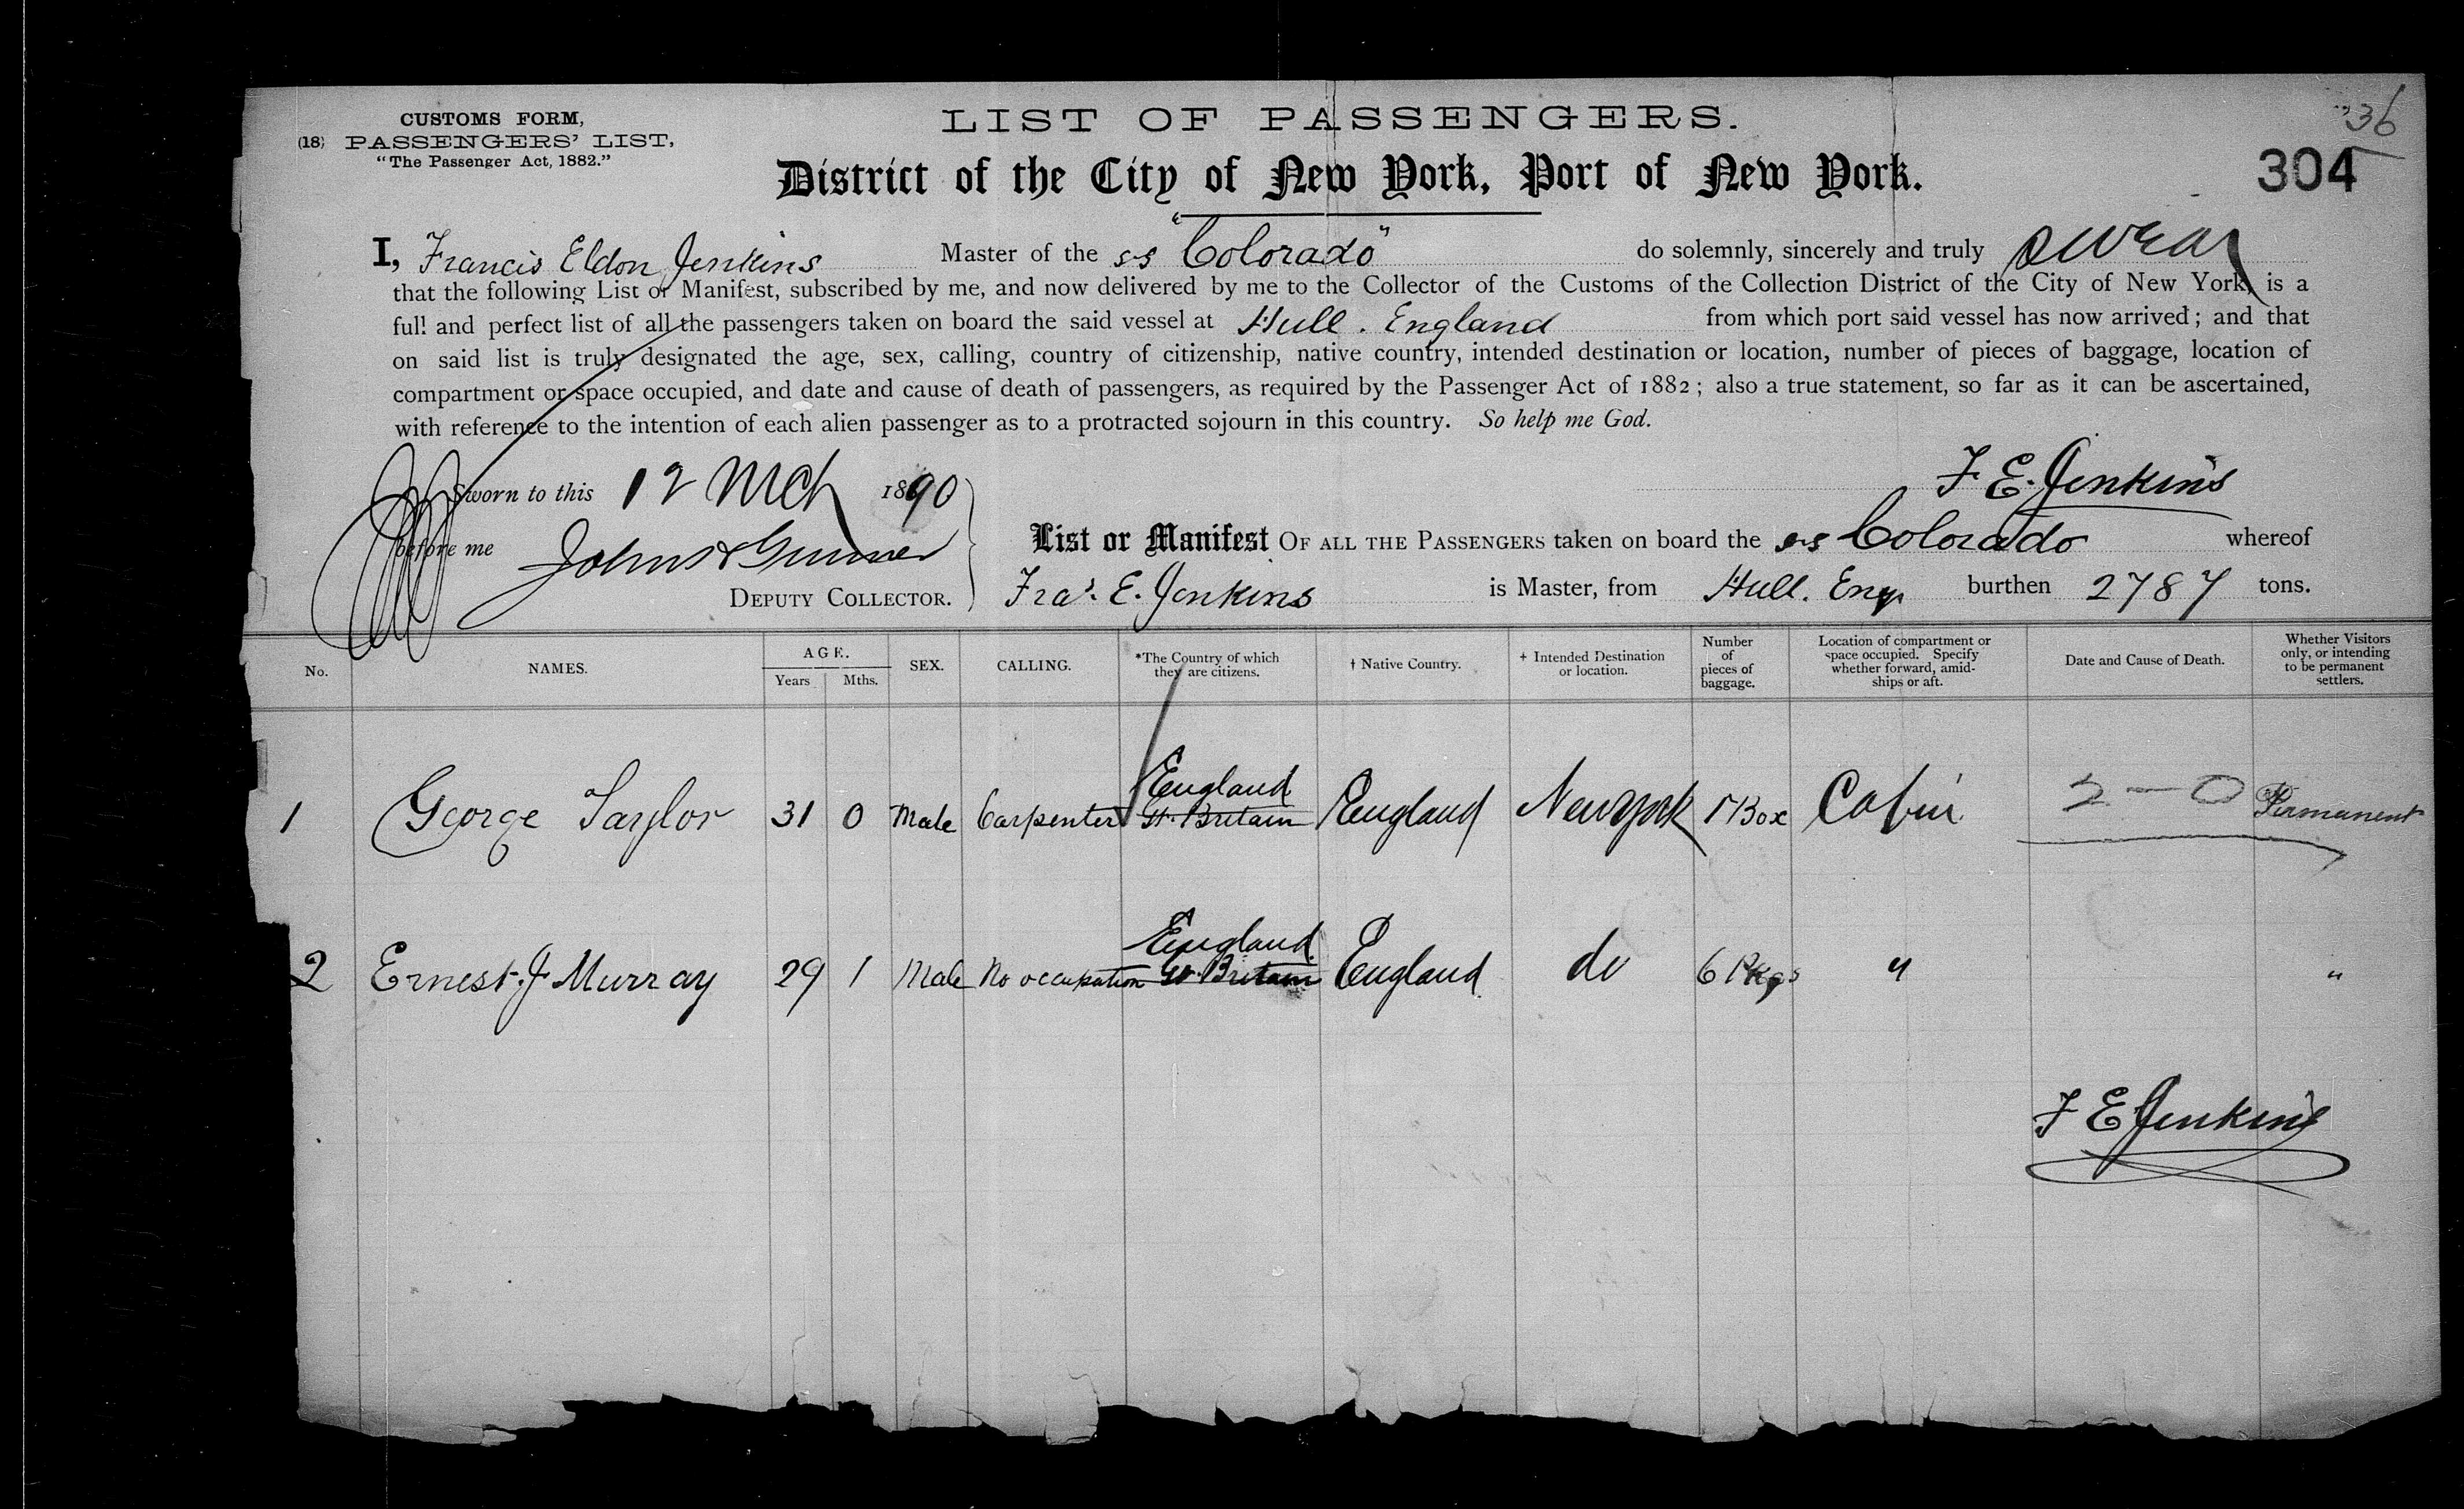 CUSTOMS FORM,
(18) PASSENGERS' LIST,
"The Passenger Act, 1882."
LIST OF PASSENGERS.
District of the City of New York, Port of New York.
36
304
I, Francis Eldon Jenkins Master of the ss "Colorado" do solemnly, sincerely and truly swear
that the following List or Manifest, subscribed by me, and now delivered by me to the Collector of the Customs of the Collection District of the City of New York, is a
full and perfect list of all the passengers taken on board the said vessel at Hull. England from which port said vessel has now arrived; and that
on said list is truly designated the age, sex, calling, country of citizenship, native country, intended destination or location, number of pieces of baggage, location of
compartment or space occupied, and date and cause of death of passengers, as required by the Passenger Act of 1882; also a true statement, so far as it can be ascertained,
with reference to the intention of each alien passenger as to a protracted sojourn in this country. So help me God.
F. E. Jenkins
Sworn to this 12 Mch 1890
before me
DEPUTY COLLECTOR.
List or Manifest OF ALL THE PASSENGERS taken on board the ss Colorado whereof
Fras. E. Jenkins is Master, from Hull. Eng burthen 2787 tons.
No. NAMES. AGE. Years Mths. SEX. CALLING. *The Country of which they are citizens. † Native Country. ‡ Intended Destination or location. Number of pieces of baggage. Location of compartment or space occupied. Specify whether forward, amidships or aft. Date and Cause of Death. Whether Visitors only, or intending to be permanent settlers.
1 George Taylor 31 0 Male Carpenter England Gt. Britain England New York 1 Box Cabin 2 — 0 Permanent
2 Ernest. J Murray 29 1 Male No occupation England Gt. Britain England do 6 Pkgs " "
F E Jenkins